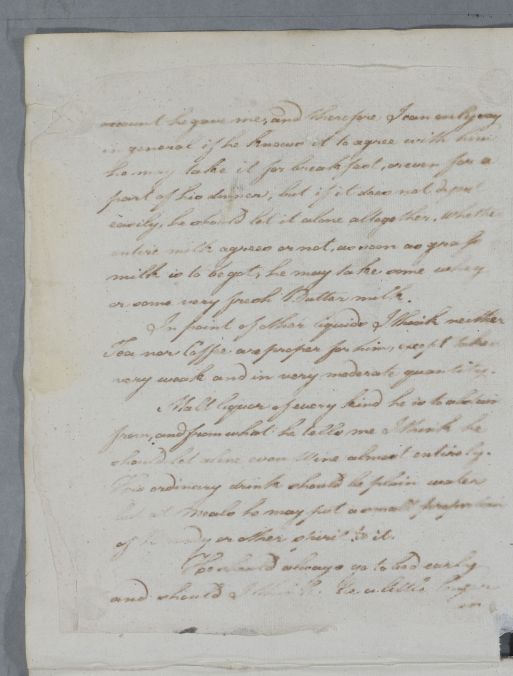 account he gave me, and therefore I can only say
in general if he knows it to agree with him
he may take it for breakfast, or even for a
part of his dinner, but if it does not digest
easily, he should let it alone altogether. Whether
entire milk agrees or not, as soon as grass
milk is to be got, he may take some whey
or some very fresh Butter milk.
In point of other liquids I think neither
Tea nor Coffee are proper for him, except taken
very weak and in very moderate quantity.
Malt liquor of every kind he is to abstain
from, and from what he tells me I think he
should let alone even Wine almost entirely.
His ordinary drink should be plain water
but at meals he may put a small proportion
of Brandy or other spirit to it.
He should always go to bed early
and should I think be a little longer
in